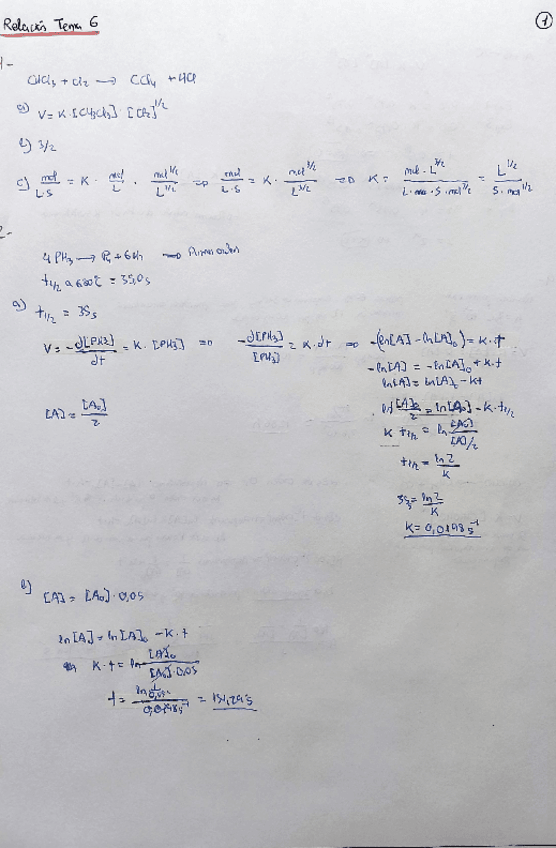 Relación Tema 6
1
1-
CHCl3 + Cl2 → CCl4 + HCl
a) V = K·[CHCl3]·[Cl2]^1/2
b) 3/2
c) mol/L·s = K · mol/L · mol^1/2/L^1/2 ⇒ mol/L·s = K · mol^3/2/L^3/2 ⇒ K = mol·L^3/2/L·mol·s·mol^1/2 = L^1/2/s·mol^1/2
2-
4PH3 → P4 + 6H2 ⇒ Primer orden
t1/2 a 680°C = 35,0s
a) t1/2 = 35s
V = -d[PH3]/dt = K·[PH3] ⇒ -d[PH3]/[PH3] = K·dt ⇒ -(ln[A] - ln[A]0) = K·t
-ln[A] = -ln[A]0 + K·t
ln[A] = ln[A]0 - Kt
[A] = [A0]/2
ln [A]0/2 = ln[A0] - K·t1/2
K t1/2 = ln [A0]/[A]/2
t1/2 = ln2/K
35s = ln2/K
K = 0,0198 s^-1
b) [A] = [A0]·0,05
ln[A] = ln[A]0 - K·t
K·t = ln [A]0/[A0]·0,05
t = ln 1/0,05/0,0198s^-1 = 151,29s